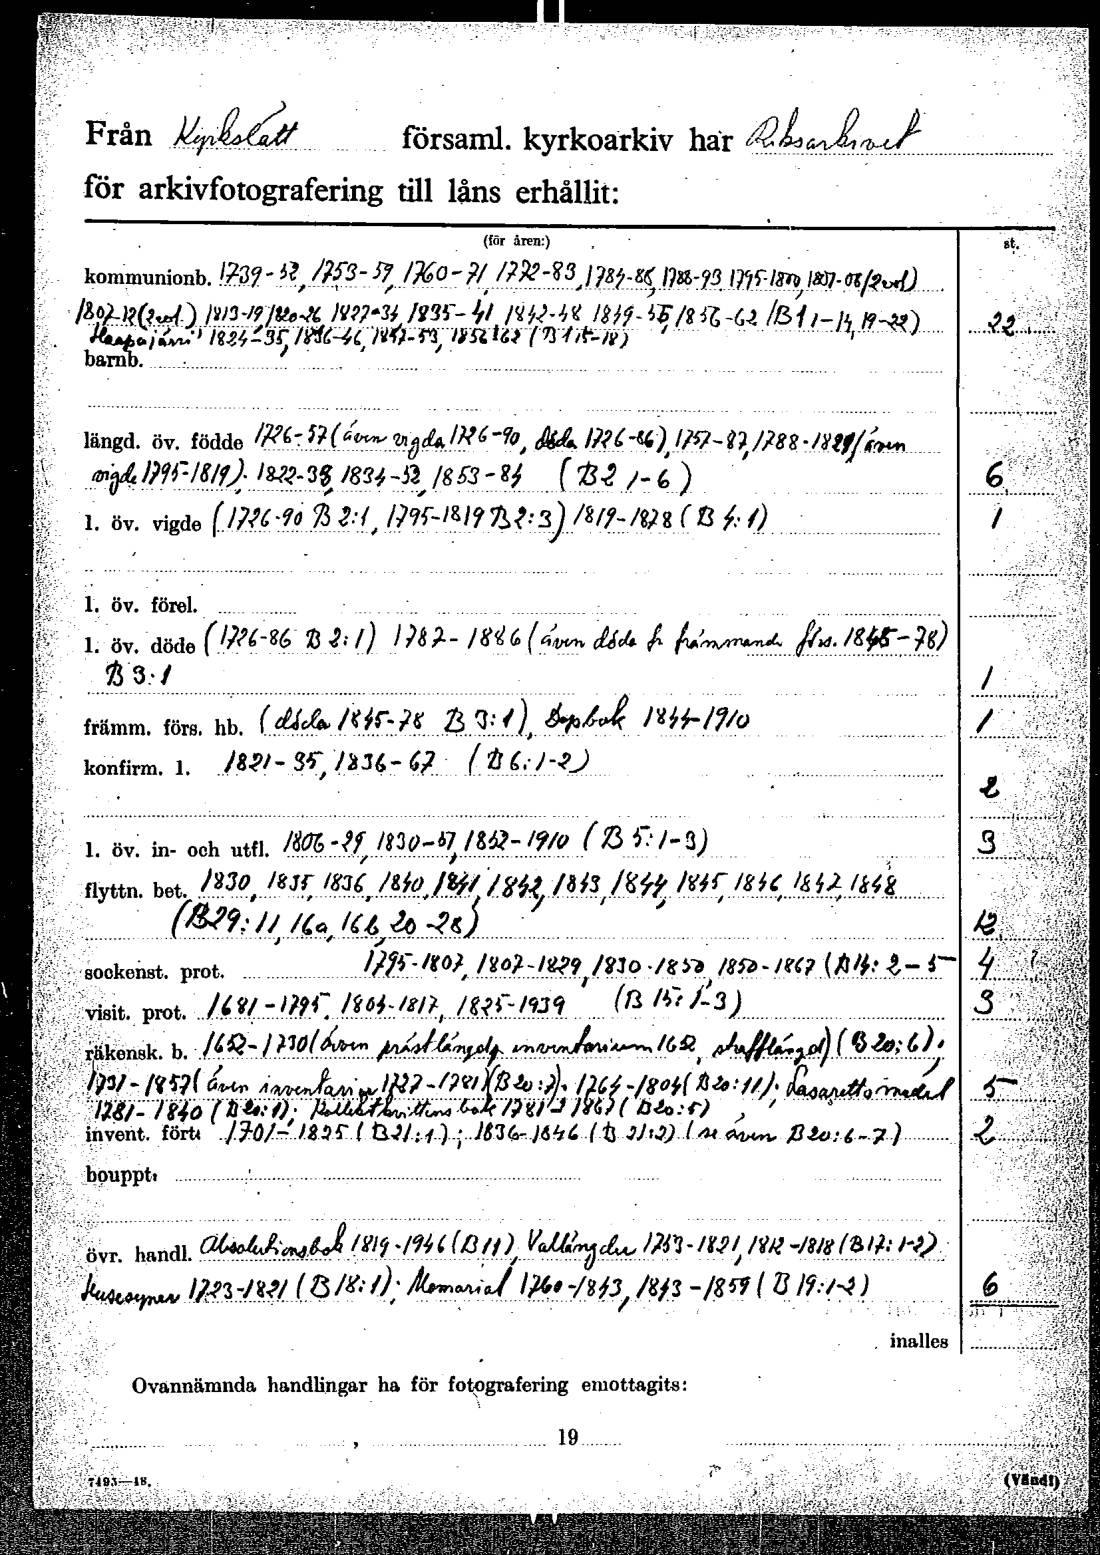 Från Kyrkslätt församl. kyrkoarkiv har Riksarkivet
för arkivfotografering till låns erhållit:
(för åren:) st.
kommunionb. 1739-52, 1753-59, 1760-71, 1772-83, 1784-86, 1788-93, 1795-1800, 1801-06 (2 vol)
1807-12 (2 vol.) 1813-19, 1820-26, 1827-34, 1835-41, 1842-48, 1849-55, 1856-62 (B1 1-14, 19-22) 22
Haapajärvi 1824-35, 1836-46, 1847-53, 1856-62 (B1 15-18)
barnb.
längd. öv. födde 1726-57 (även vigda 1726-90, döda 1726-86), 1757-87, 1788-1821 (även
vigde 1795-1819), 1822-33, 1834-52, 1853-84 (B2 1-6) 6
l. öv. vigde (1726-90 B 2:1, 1795-1819 B 2:3) 1819-1878 (B 4:1) 1
l. öv. förel.
l. öv. döde (1726-86 B 2:1) 1787-1886 (även döda fr främmande förs. 1845-78)
B 3:1 1
främm. förs. hb. (döda 1845-78 B 3:1), Dopbok 1844-1910 1
konfirm. l. 1821-35, 1836-67 (B 6:1-2)
2
l. öv. in- och utfl. 1806-29, 1830-51, 1852-1910 (B 5:1-3) 3
flyttn. bet. 1830, 1835, 1836, 1840, 1841, 1842, 1843, 1844, 1845, 1846, 1847, 1848
(B29: 11, 16a, 16b, 20-28) 12
sockenst. prot. 1795-1807, 1807-1829, 1830-1850, 1850-1867 (B14: 2-5 4 ?
visit. prot. 1681-1795, 1804-1817, 1825-1939 (B 15: 1-3) 3
räkensk. b. 1652-1730 (även prästlängd, inventarium 1652, strafflängd) (B 20:6);
1731-1857 (även inventarier 1727-1781) (B 20:7); 1764-1804 (B20:11); Lasarettsmedel 5
1781-1840 (B 20:1); Kollektkvittensbok 1781-1867 (B20:5)
invent. fört. 1701-1825 (B21:1); 1836-1846 (B 21:2) (se även B20:6-7) 2
bouppt.
övr. handl. Absolutionsbok 1819-1946 (B11), Vallängder 1753-1821, 1812-1818 (B17: 1-2)
Husesyner 1723-1821 (B 18:1); Memorial 1760-1843, 1843-1859 (B 19:1-2) 6
inalles
Ovannämnda handlingar ha för fotografering emottagits:
19
7495—48. (Vänd!)